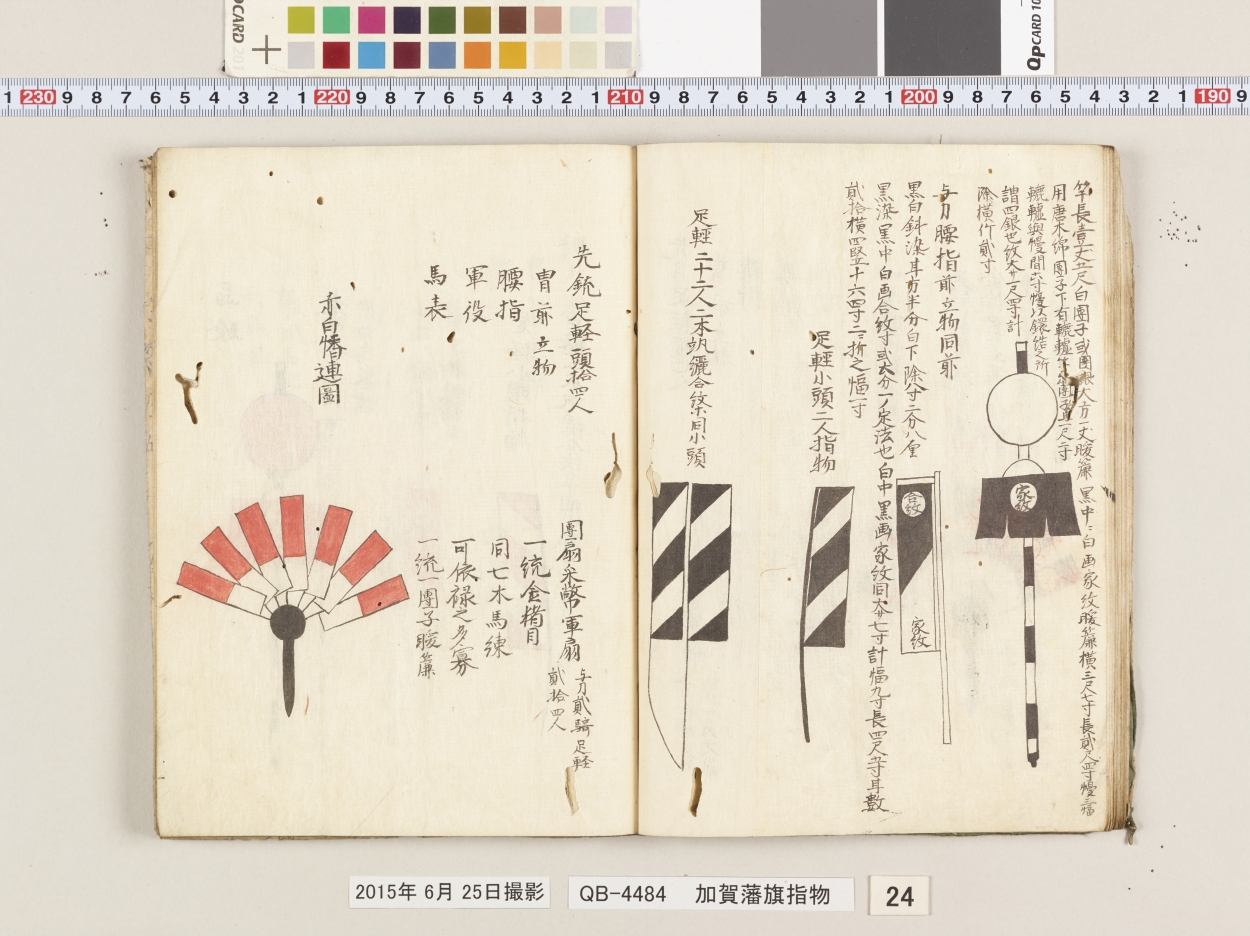 竿長壹丈五尺白團子或團扇大方一丈暖簾 黒中ニ白画家紋暖簾横三尺七寸長貳尺四寸慢三幅
用唐木綿團子下有轆轤
轆轤與慢間六寸慢以鐶結之所
謂四銀也紋大サ一尺四寸計
除横竹貳寸
与力腰指前立物同前
黒白斜染耳方半分白下除八寸二分八厘
黒染黒中白画合紋寸或五分一ノ定法也白中黒画家紋同大サ七寸計幅九寸長四尺五寸耳數
貳拾横四竪十六四寸二ニ折之幅一寸
合紋
家紋
家紋
足軽小頭二人指物
足軽二十二人二本
合紋同小頭
先銃足軽頭拾四人
冑前立物
腰指
軍役
馬表
赤白幡連圖
團扇采幣軍扇
与力貳騎足軽
貳拾四人
一統金
同七本馬練
可依禄之多寡
一統一團子暖簾
QPCARD 201
QPCARD 10
1 230 9 8 7 6 5 4 3 2 1 220 9 8 7 6 5 4 3 2 1 210 9 8 7 6 5 4 3 2 1 200 9 8 7 6 5 4 3 2 1 190 9
2015年 6月 25日撮影
QB-4484 加賀藩旗指物
24